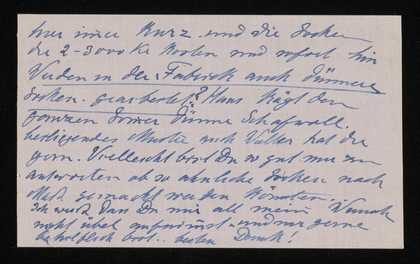 nur immer Kurz. und die Socken
die 2-3000 Kr kosten und sofort hin
Werden in der Fabrik auch dünnere
Socken. gearbeitet? Hans trägt den
ganzen Sommer dünne Schafwoll.
beiliegendes Muster auch Vater hat die
gern. Vielleicht bist Du so gut mir zu
antworten ob so ähnliche Socken nach
Mass gemacht werden könnten.
Ich weiß dass Du mir all meine Wünsche
nicht übel aufnimmst und mir gerne
behilflich bist.. besten Dank!